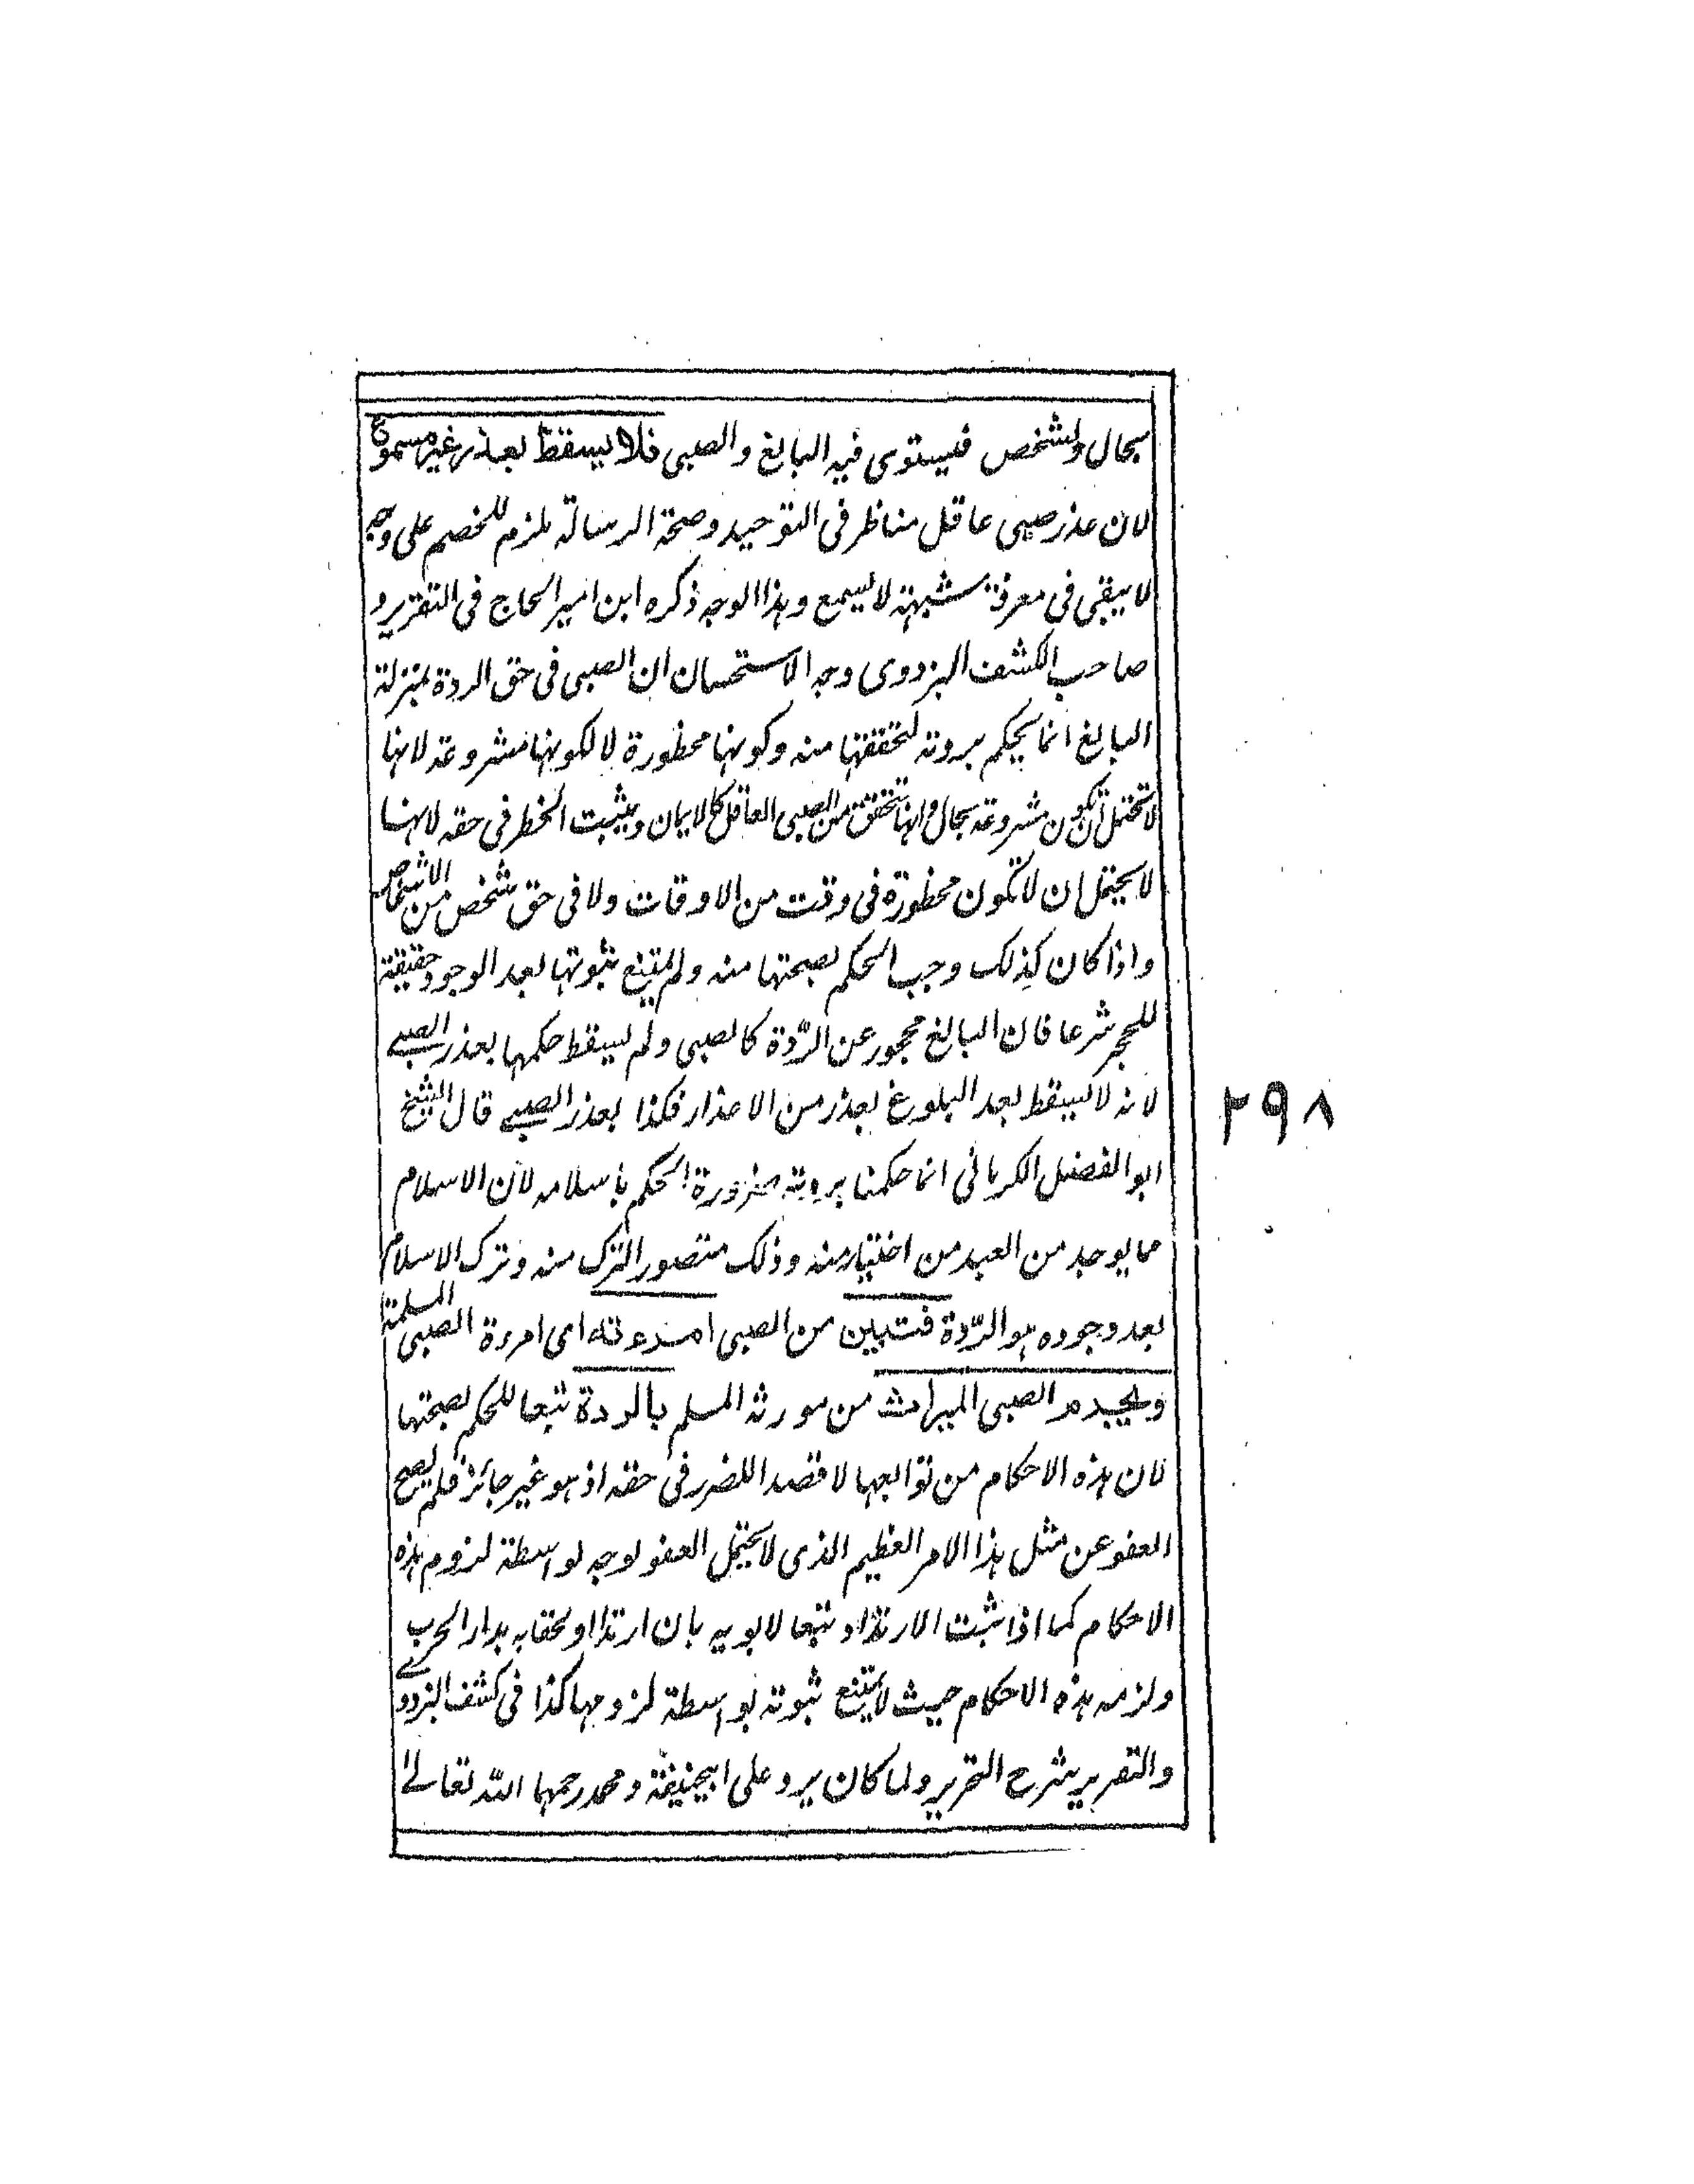 بحال ولشخص فيستوى فيه البالغ والصبى فلا يسقط بعذر غير مسموع
لان عذر صبى عاقل مناظر فى التوحيد وصحة الرسالة ملزم للخصم على وجه
لا يبقى فى معرفة شبهة لا يسمع وهذا الوجه ذكره ابن امير الحاج فى التقرير و
صاحب الكشف البزدوى وجه الاستحسان ان الصبى فى حق الردة بمنزلة
البالغ انما يحكم بردته لتحققها منه وكونها محظورة لا لكونها مشروعة لانها
لا تحتمل ان تكون مشروعة بحال وانها تتحقق من الصبى العاقل كالايمان ويثبت الخطر فى حقه لانها
لا يحتمل ان لا تكون محظورة فى وقت من الاوقات ولا فى حق شخص من الاشخاص
واذا كان كذلك وجب الحكم بصحتها منه ولم يمتنع ثبوتها بعد الوجود حقيقة
للحجر شرعا فان البالغ محجور عن الردّة كالصبى ولم يسقط حكمها بعذر الصبى
لانه لا يسقط بعد البلوغ بعذر من الاعذار فكذا بعذر الصبى قال الشيخ
ابو الفضل الكرمانى انما حكمنا بردته ضرورة الحكم باسلامه لان الاسلام
مما يوجد من العبد من اختيار منه وذلك متصور الترك منه وترك الاسلام
بعد وجوده هو الردّة فتبين من الصبى امرءته اى امرءة الصبى المسلمة
ويحرم الصبى الميراث من مورثه المسلم بالردة تبعا للحكم بصحتها
لان هذه الاحكام من توابعها لا قصدا للضرر فى حقه اذ هو غير جائز فلم يصح
العفو عن مثل هذا الامر العظيم الذى لا يحتمل العفو لوجه بواسطة لزوم هذه
الاحكام كما اذا ثبت الارتداد تبعا لابويه بان ارتدا ولحقا به بدار الحرب
ولزمه هذه الاحكام حيث لا يمتنع ثبوته بواسطة لزومها كذا فى كشف البزدوى
والتقرير شرح التحرير ولما كان يرد على ابيحنيفة ومحمد رحمهما الله تعالى
٢٩٨